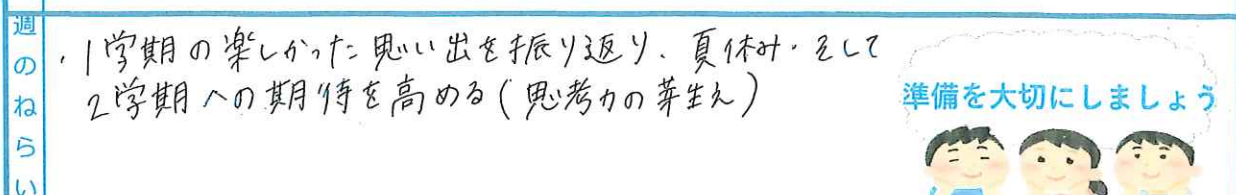 週のねらい
・1学期の楽しかった思い出を振り返り、夏休み・そして
2学期への期待を高める(思考力の芽生え)
準備を大切にしましょう